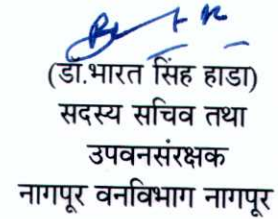 (डॉ.भारत सिंह हाडा)
सदस्य सचिव तथा
उपवनसंरक्षक
नागपूर वनविभाग नागपूर